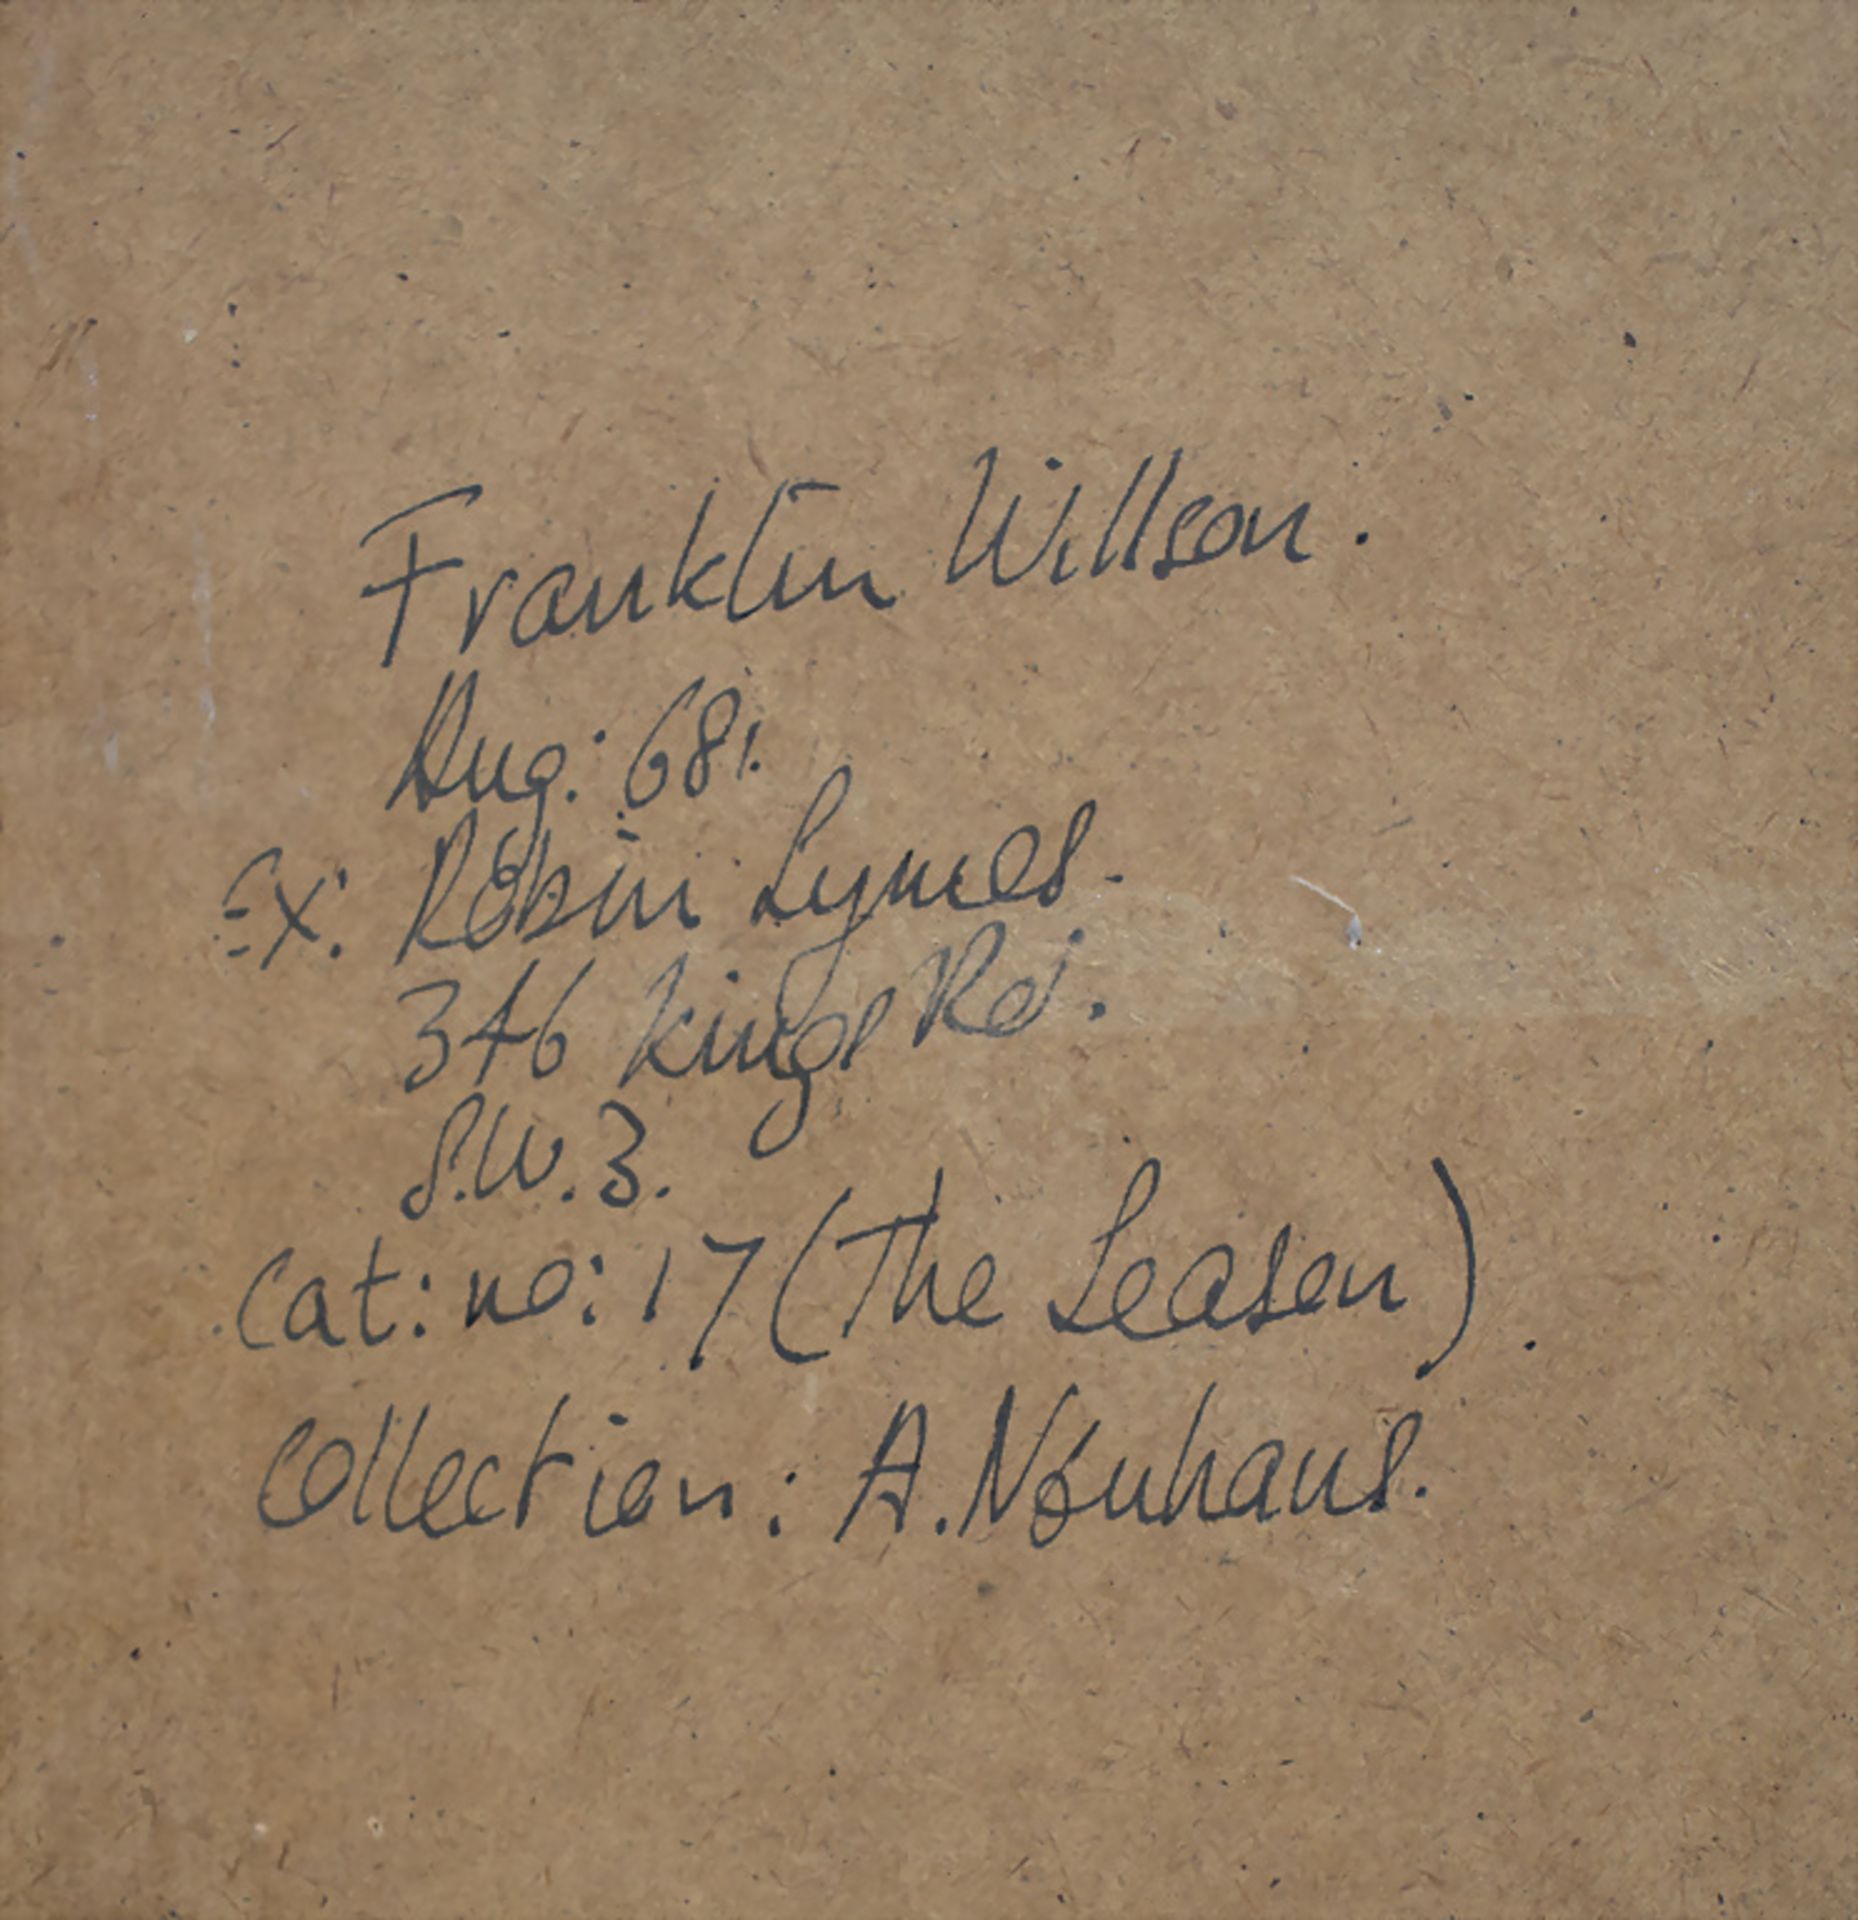 Franklin Willson.
Aug: 68.
Ex: Robin Symes.
346 Kings Rd.
S.W.3.
Cat: no: 17 (The Season).
Collection: A. Neuhaus.